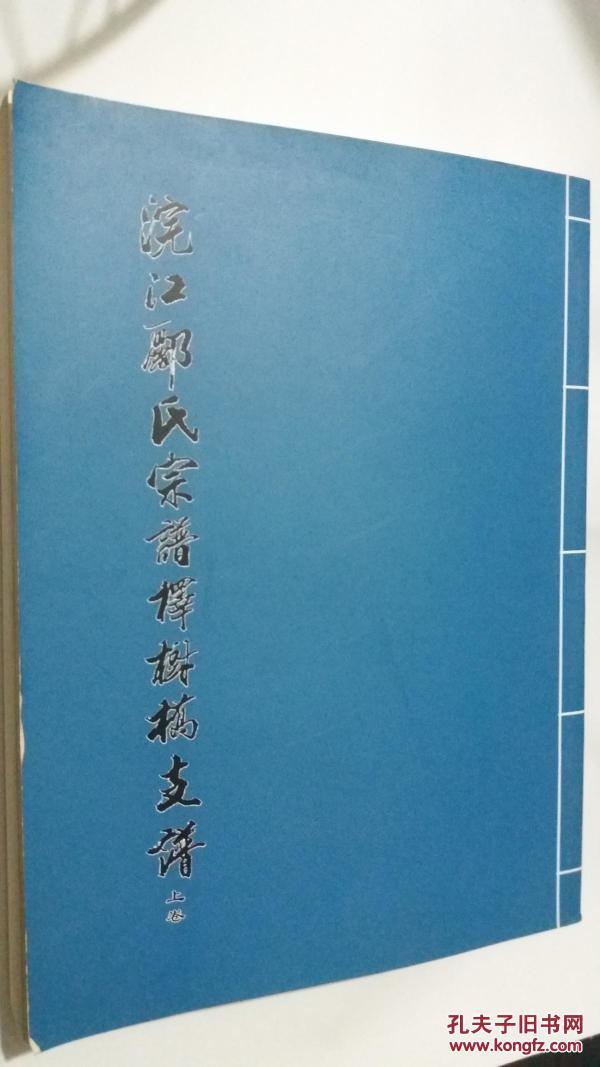 浣江郦氏宗譜檡樹橋支譜
上卷
孔夫子旧书网
www.kongfz.com